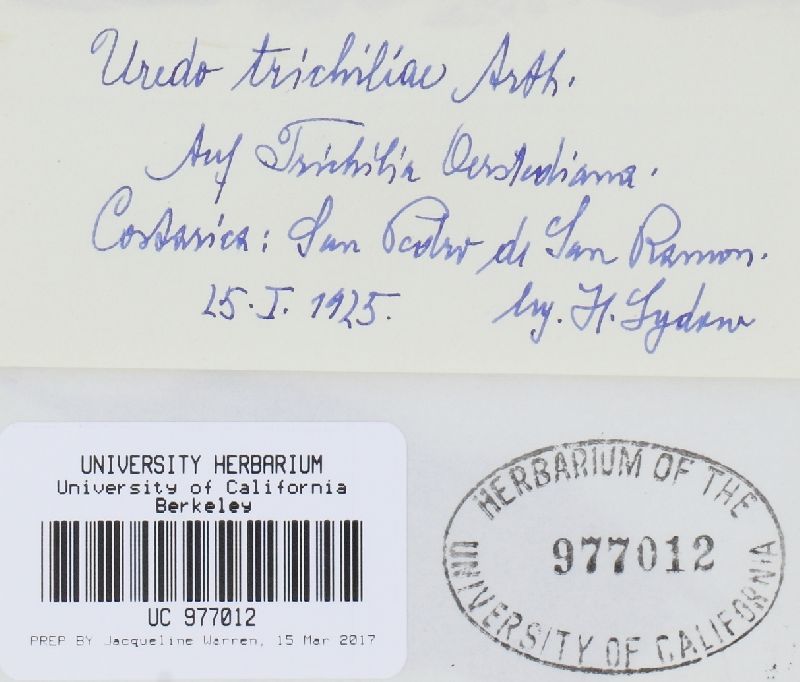 Uredo trichiliae Arth.
Auf Trichilia Oerstediana.
Costarica: San Pedro de San Ramon.
25. I. 1925. leg. H. Sydow
UNIVERSITY HERBARIUM
University of California
Berkeley
UC 977012
PREP BY Jacqueline Warren, 15 Mar 2017
HERBARIUM OF THE
977012
UNIVERSITY OF CALIFORNIA